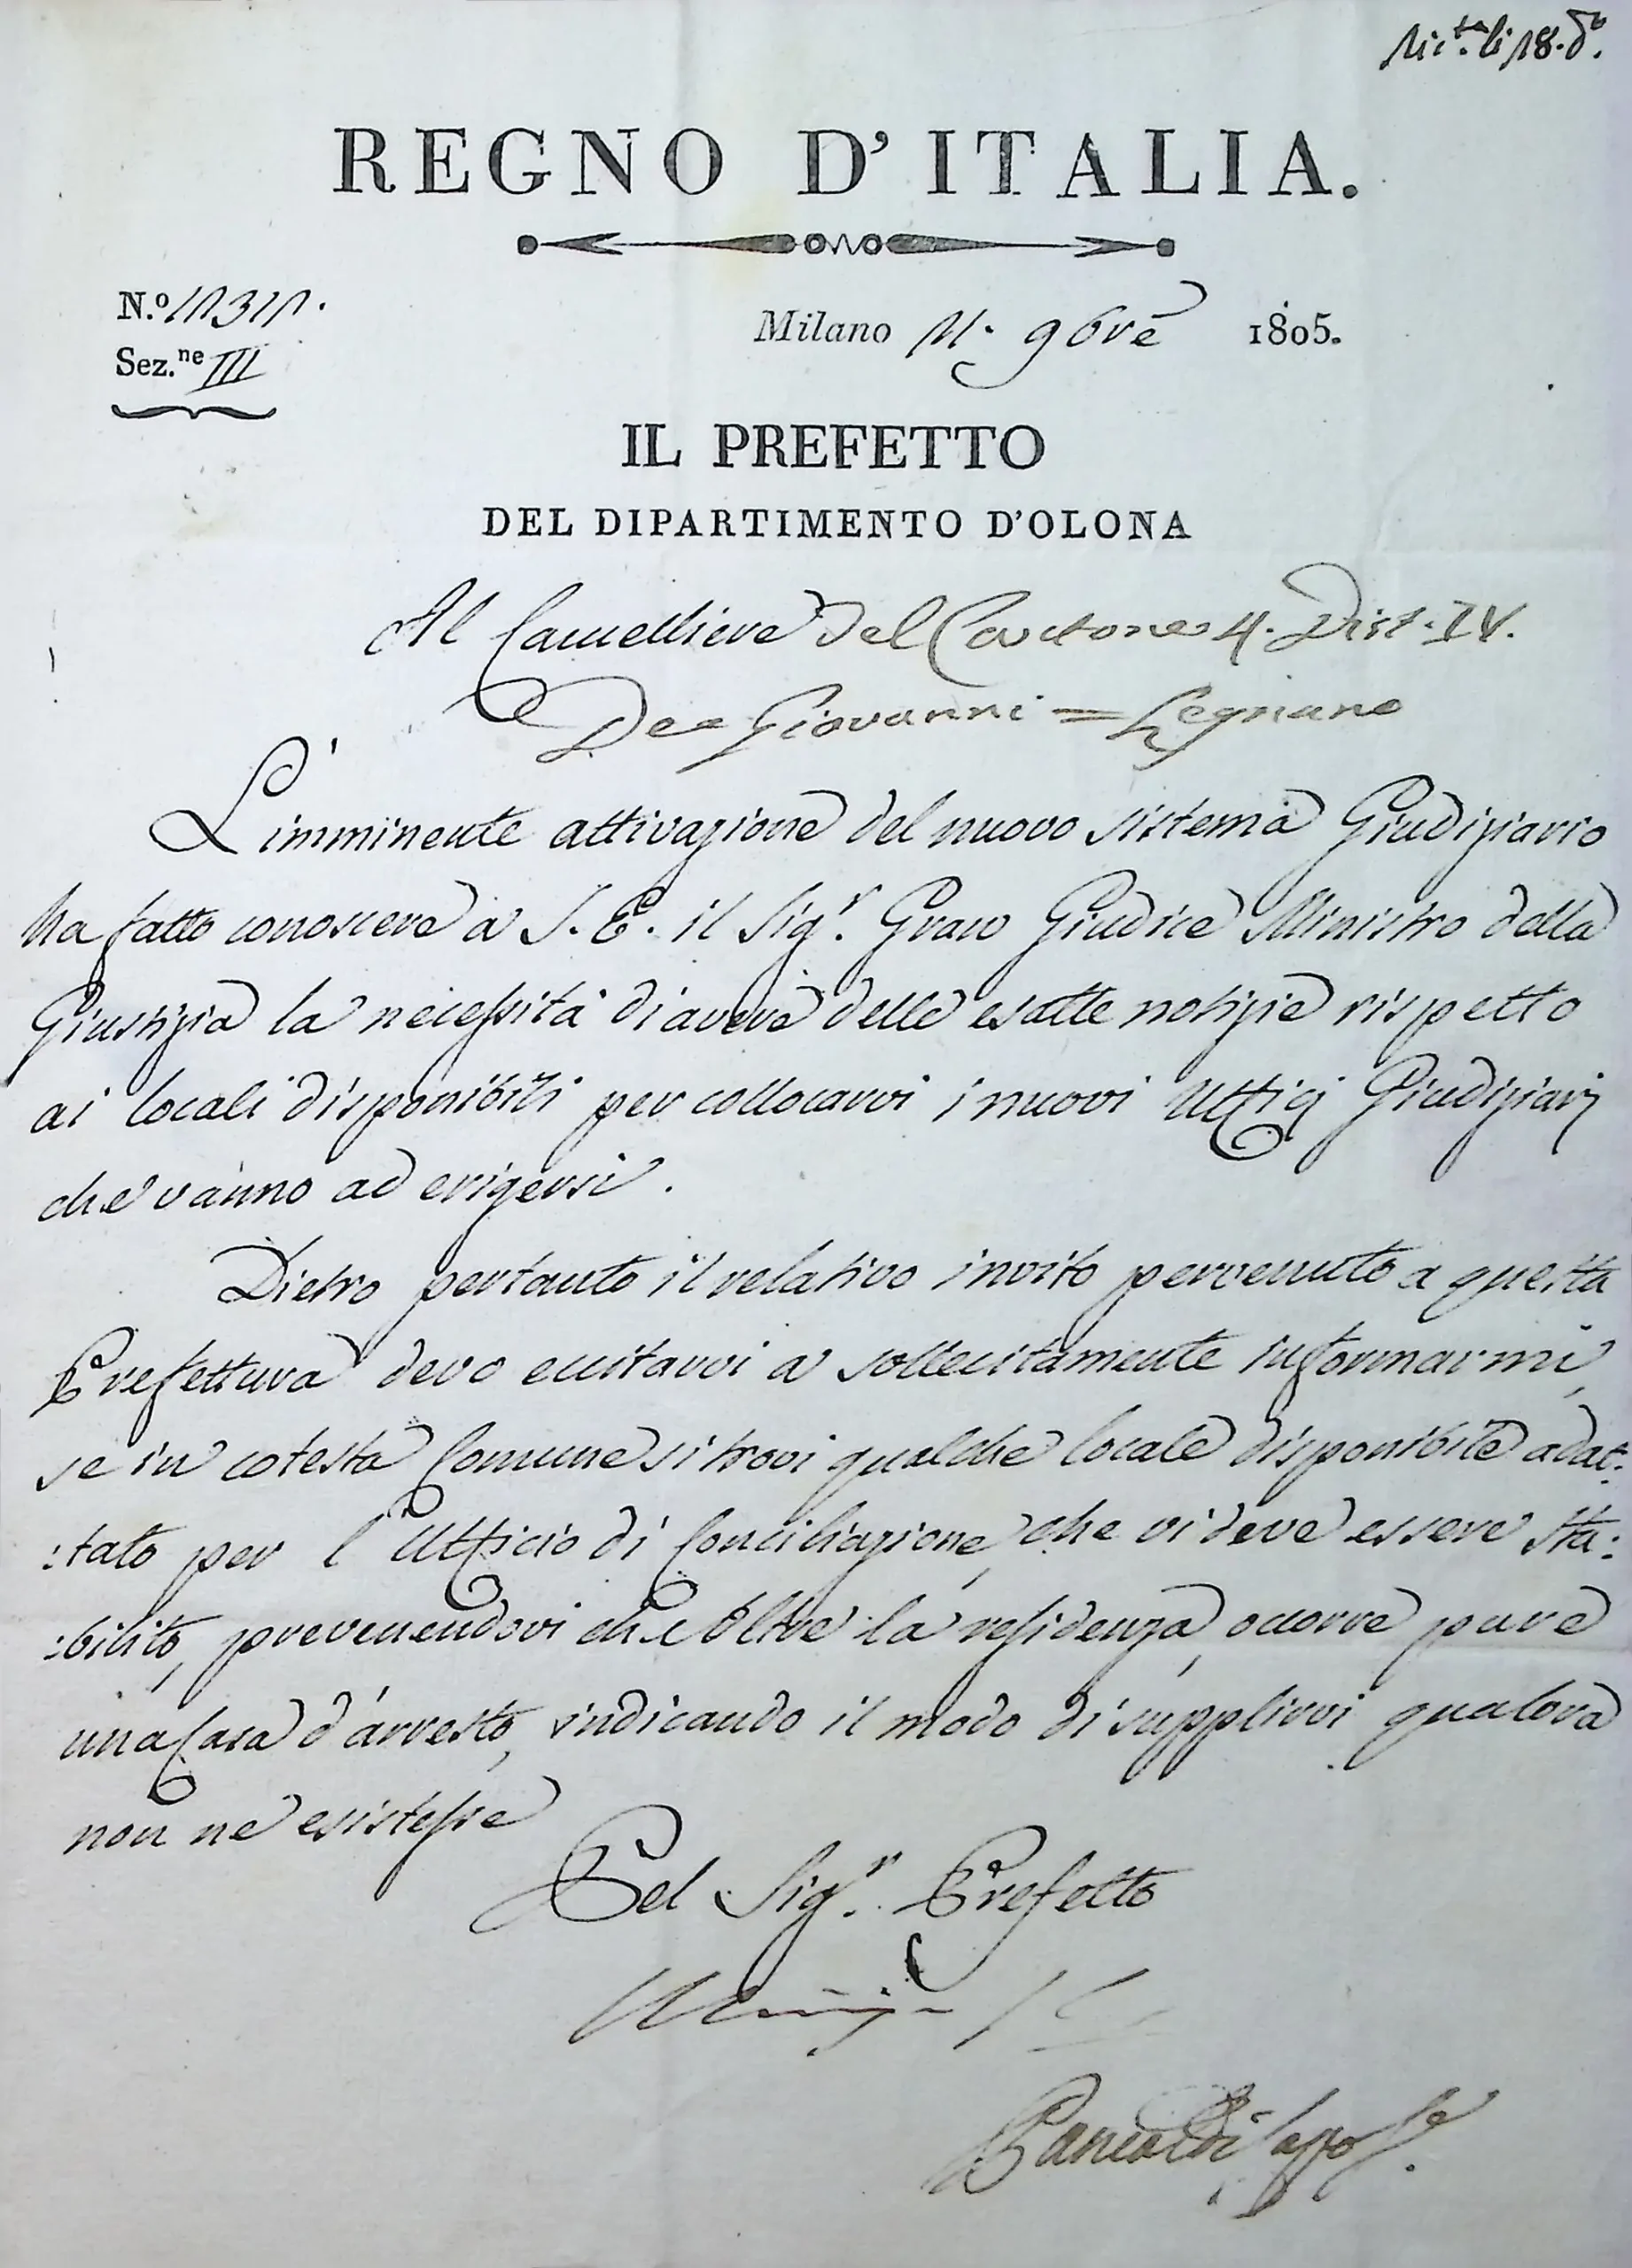 Ric.ta li 18. d.o
REGNO D'ITALIA.
N.o 11311.
Milano 11. 9bre 1805.
Sez.ne III
IL PREFETTO
DEL DIPARTIMENTO D'OLONA
Al Cancelliere del Cantone 4. Dist. IV.
De Giovanni = Legnano
L'imminente attivazione del nuovo sistema Giudiziario
ha fatto conoscere a S. E. il Sig.r Gran Giudice Ministro della
Giustizia la necessità di avere delle esatte notizie rispetto
ai locali disponibili per collocarvi i nuovi Ufficj Giudiziarj
che vanno ad erigersi.
Dietro pertanto il relativo invito pervenuto a questa
Prefettura devo eccitarvi a sollecitamente informarmi,
se in cotesta Comune si trovi qualche locale disponibile adat:
:tato per l'Ufficio di Conciliazione, che vi deve essere sta:
:bilito, prevenendovi che oltre la residenza, occorre pure
una Casa d'arresto, indicando il modo di supplirvi qualora
non ne esistesse
Pel Sig.r Prefetto
Bancaldi